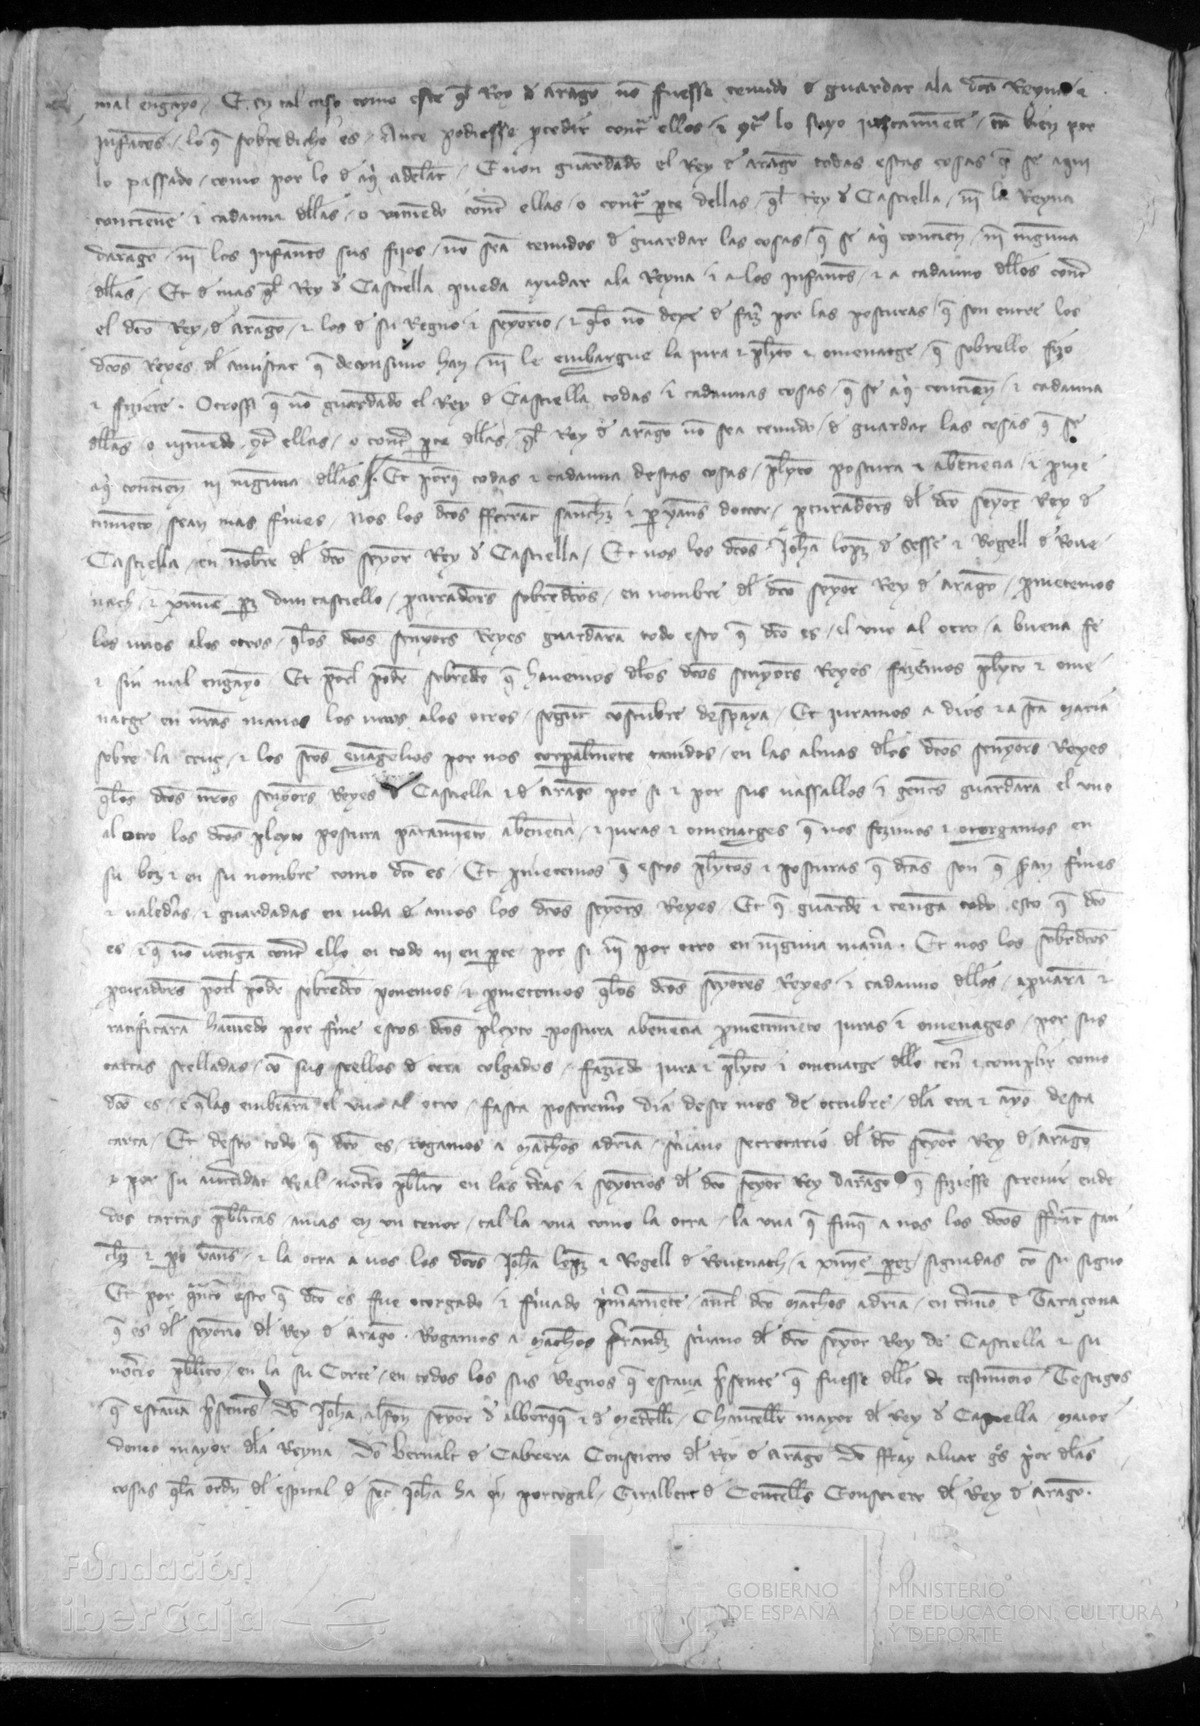 mal enganyo. E en tal caso como este ql Rey d aragon no fuesse tenudo d guardar ala dca Reyna i
infantes, lo q sobredicho es. Ante podiesse pcedir contra ellos, i contra lo suyo justament, tan bien por
lo passado, como por lo d aqi adelant. E non guardado el Rey d aragon todas estas cosas q se aqui
contienen i cadauna dllas, o viniendo cont ellas, o contra pte dellas, ql Rey d Castiella, ni la Reyna
daragon, ni los infantes sus fijos, no sean tenudos d guardar las cosas, q se aqi contien, ni ninguna
dllas. Et d mas ql Rey d Castiella pueda ayudar ala Reyna i a los infantes, i a cadauno dllos cont
el dco Rey d aragon, i los d su Regno i senyorio, i qlo no dexe d fazer por las posturas, q son entre los
dcos Reyes dl amistat q deconsuno han, ni le embargue la jura i plyto i omenatge, q sobrello fizo
i fiziere. Otrossi q no guardado el Rey d Castiella todas i cadaunas cosas, q se aqi contienen, i cadauna
dllas, o viniendo cont ellas, o cont pte dllas, ql Rey d aragon no sea tenudo d guardar las cosas q se
aqi contien ni ninguna dllas. Et porq todas i cadauna destas cosas, plyto postura i abenencia, i pme
timiento sean mas firmes, Nos los dcos fferrant sanchez i p yanes doctor, pcuradores dl dco senyor Rey d
Castiella, en nombre dl dco senyor Rey d Castiella, Et nos los dcos Johan lopez d sesse i Rogell d Roue
nach, i xime pz dun castiello, pcuradores sobredcos, en nombre dl dco senyor Rey d aragon, pmetemos
los unos alos otros, qlos dcos senyores Reyes guardaran todo esto q dco es, el uno al otro, a buena fe
i sin mal enganyo. Et porl poder sobredco q hauemos dlos dcos senyores Reyes fazemos plyto i ome
natge en nras manos los unos alos otros, segunt costubre despanya. Et juramos a dios i a sta maria
sobre la cruz, i los stos euangelios por nos corpalmente tanidos, en las almas dlos dcos senyores Reyes
qlos dcos nros senyores Reyes d Castiella i d aragon por si i por sus uassallos i gentes guardaran el uno
al otro los dcos pleyto postura paramiento abenencia, i juras i omenatges q nos fizimos i otorgamos en
su boz i en su nombre como dco es. Et pmetemos q estos plytos i posturas q dcas son q sean firmes
i ualederas, i guardadas en uida d amos los dcos senyores Reyes. Et q guarden i tengan todo esto q dco
es, i q no uengan cont ello en todo ni en pte por si ni por otro en ninguna manera. Et nos los sobredcos
pcuradores porl poder sobredco ponemos, i pmetemos qlos dcos senyores Reyes, i cadauno dllos, apuaran i
ratificaran hauiendo por firme estos dcos pleyto postura abenencia pmetimiento juras i omenages, por sus
cartas seelladas, con sus seellos d cera colgados, faziendo jura i plyto i omenatge dllo tener i complir como
dco es, e qlas embiaran el uno al otro, fasta postremero dia deste mes de octubre, dla era i anyo desta
carta. Et desto todo q dco es, rogamos a matheos adrian, scriuano secretario dl dco senyor Rey d aragon
i por su auctoridat Real notario publico en las tierras i senyorios dl dco senyor Rey daragon q fiziesse screuir ende
dos cartas publicas, amas en un tenor, tal la una como la otra, la una q finq a nos los dcos fferrant san
chez i po yanes, i la otra a nos los dcos Johan lopez i Rogell d Rouenach, i xime perez, signadas con su signo
Et por qnto esto q dco es fue otorgado i firmado primerament, antl dco matheos adrian, en termino d Taraçona
q es dl senyorio dl Rey d aragon. Rogamos a matheos ferrandez scriuano dl dco senyor Rey de Castiella i su
notario publico, en la su Corte, en todos los sus Regnos q estaua psente q fuesse dllo de testimonio. Testigos
q estauan psentes Don Johan alfonso senyor d alborqrq i d medelli, Chanceller mayor dl Rey d Castiella, maior
domo mayor dla Reyna. Don bernalt d Cabrera Consiero dl Rey d aragon. Don ffray aluar gos prior dlas
cosas qla orden dl espital d sant Johan ha en portogal. Giralbert d Centelles Consiero dl Rey d aragon.
Fundación
iberCaja
GOBIERNO
DE ESPAÑA
MINISTERIO
DE EDUCACIÓN, CULTURA
Y DEPORTE